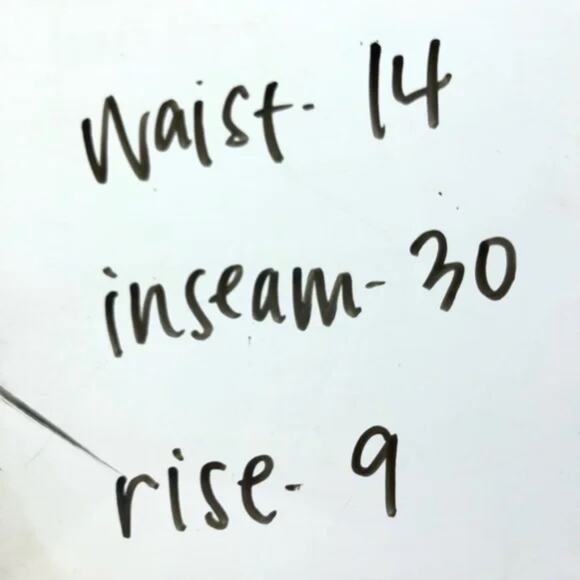 Waist- 14
inseam- 30
rise- 9